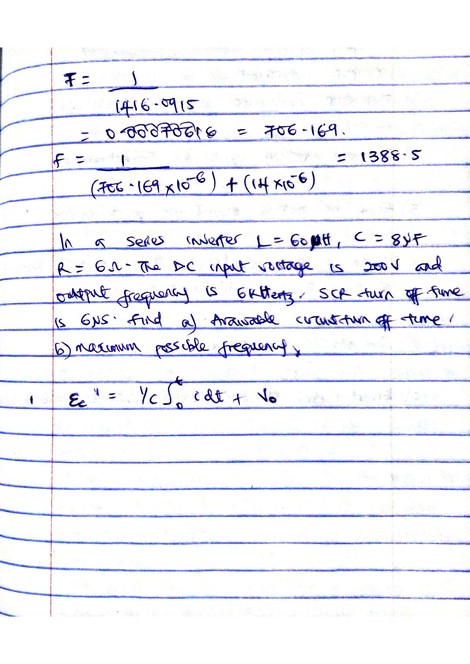 F = 1 / 1416.0915
= 0.00070616 = 706.169.
f = 1 / (706.169 x10^-6) + (14 x10^-6) = 1388.5
In a series inverter L = 60 μH, C = 8μF
R = 6Ω. The DC input voltage is 200V and
output frequency is 6KHertz. SCR turn off time
is 6μs. find a) Arawable circuit turn off time.
b) maximum possible frequency.
1 Ec = 1/C ∫₀ᵗ idt + V₀